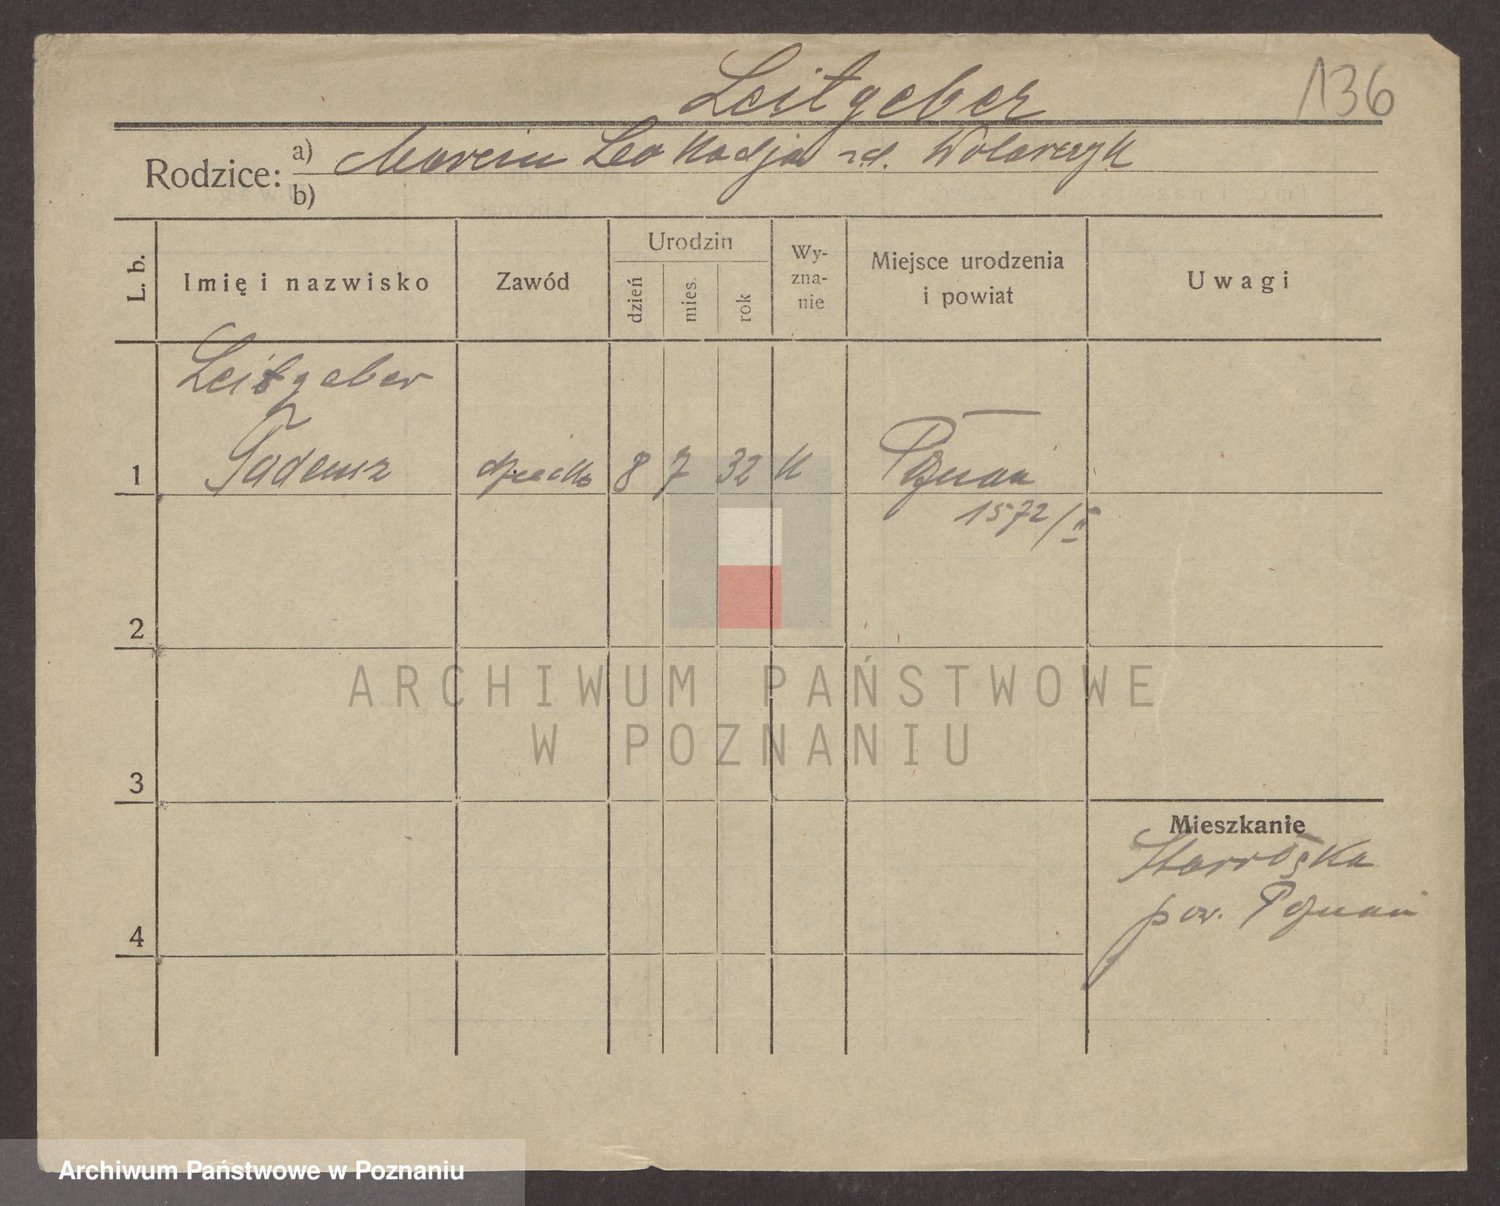 Leitgeber
136
Rodzice: a) Marcin Leokadja zd. Wolarczyk
b)
L. b.
Imię i nazwisko
Zawód
Urodzin
dzień
mies.
rok
Wy-
zna-
nie
Miejsce urodzenia
i powiat
Uwagi
Leitgeber
1 Tadeusz dziecko 8 7 32 K Poznań
1572/II
2
3
4
Mieszkanie
Starołęka
pow. Poznań
ARCHIWUM PAŃSTWOWE
W POZNANIU
Archiwum Państwowe w Poznaniu